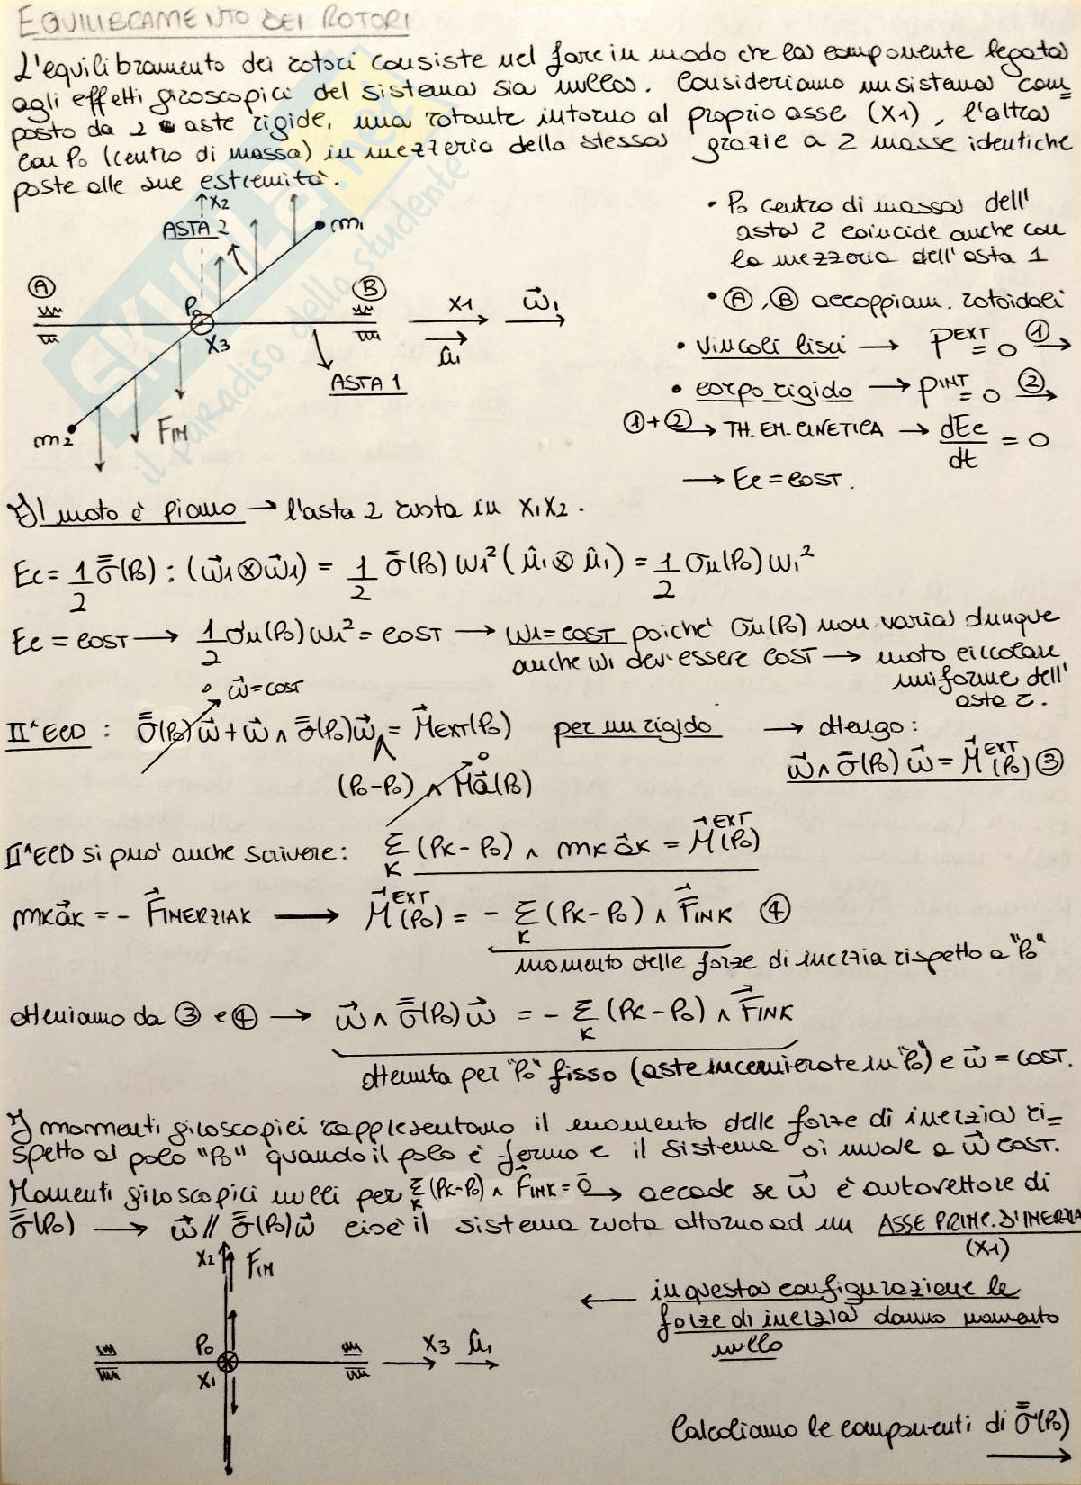 EQUILIBRAMENTO DEI ROTORI
L'equilibramento dei rotori consiste nel fare in modo che la componente legata
agli effetti giroscopici del sistema sia nulla. Consideriamo un sistema com=
posto da 2 aste rigide, una rotante intorno al proprio asse (x1), l'altra
con P0 (centro di massa) in mezzeria della stessa grazie a 2 masse identiche
poste alle sue estremità.
x2
ASTA 2
m1
A
B
P0
x3
x1
ω⃗1
û1
ASTA 1
m2
FIN
• P0 centro di massa dell'
asta 2 coincide anche con
la mezzeria dell'asta 1
• A, B accoppiam. rotoidali
• vincoli lisci → P^EXT = 0 ① →
• corpo rigido → P^INT = 0 ② →
①+② → TH. EN. CINETICA → dEc/dt = 0
→ Ec = cost.
Il moto è piano → l'asta 2 ruota in x1x2.
Ec = 1/2 σ̿(P0) : (ω⃗1 ⊗ ω⃗1) = 1/2 σ̿(P0) ω1² (û1 ⊗ û1) = 1/2 σ11(P0) ω1²
Ec = cost → 1/2 σ11(P0) ω1² = cost → ω1 = cost poiché σ11(P0) non varia dunque
anche ω1 dev'essere cost → moto circolare
uniforme dell'
asta 2.
0 ω⃗ = cost
II^a ECD : σ̿(P0) ω⃗ + ω⃗ ∧ σ̿(P0) ω⃗ = M⃗EXT(P0) per un rigido → ottengo:
ω⃗ ∧ σ̿(P0) ω⃗ = M⃗^EXT(P0) ③
(P0-P0) ∧ Ma⃗(P0) 0
II^a ECD si può anche scrivere: Σ_K (PK - P0) ∧ mK a⃗K = M⃗^EXT(P0)
mK a⃗K = - F⃗INERZIA K → M⃗^EXT(P0) = - Σ_K (PK - P0) ∧ F⃗INK ④
momento delle forze di inerzia rispetto a "P0"
otteniamo da ③ e ④ → ω⃗ ∧ σ̿(P0) ω⃗ = - Σ_K (PK - P0) ∧ F⃗INK
ottenuta per "P0" fisso (aste incernierate in "P0") e ω⃗ = cost.
I momenti giroscopici rappresentano il momento delle forze di inerzia ri=
spetto al polo "P0" quando il polo è fermo e il sistema si muove a ω⃗ cost.
Momenti giroscopici nulli per Σ_K (PK-P0) ∧ F⃗INK = 0⃗ → accade se ω⃗ è autovettore di
σ̿(P0) → ω⃗ // σ̿(P0) ω⃗ cioè il sistema ruota attorno ad un ASSE PRINC. D'INERZIA
(x1)
x2
FIN
P0
x1
x3 û1
← in questa configurazione le
forze di inerzia danno momento
nullo
Calcoliamo le componenti di σ̿(P0)
→
SKUOLA.net
il paradiso dello studente